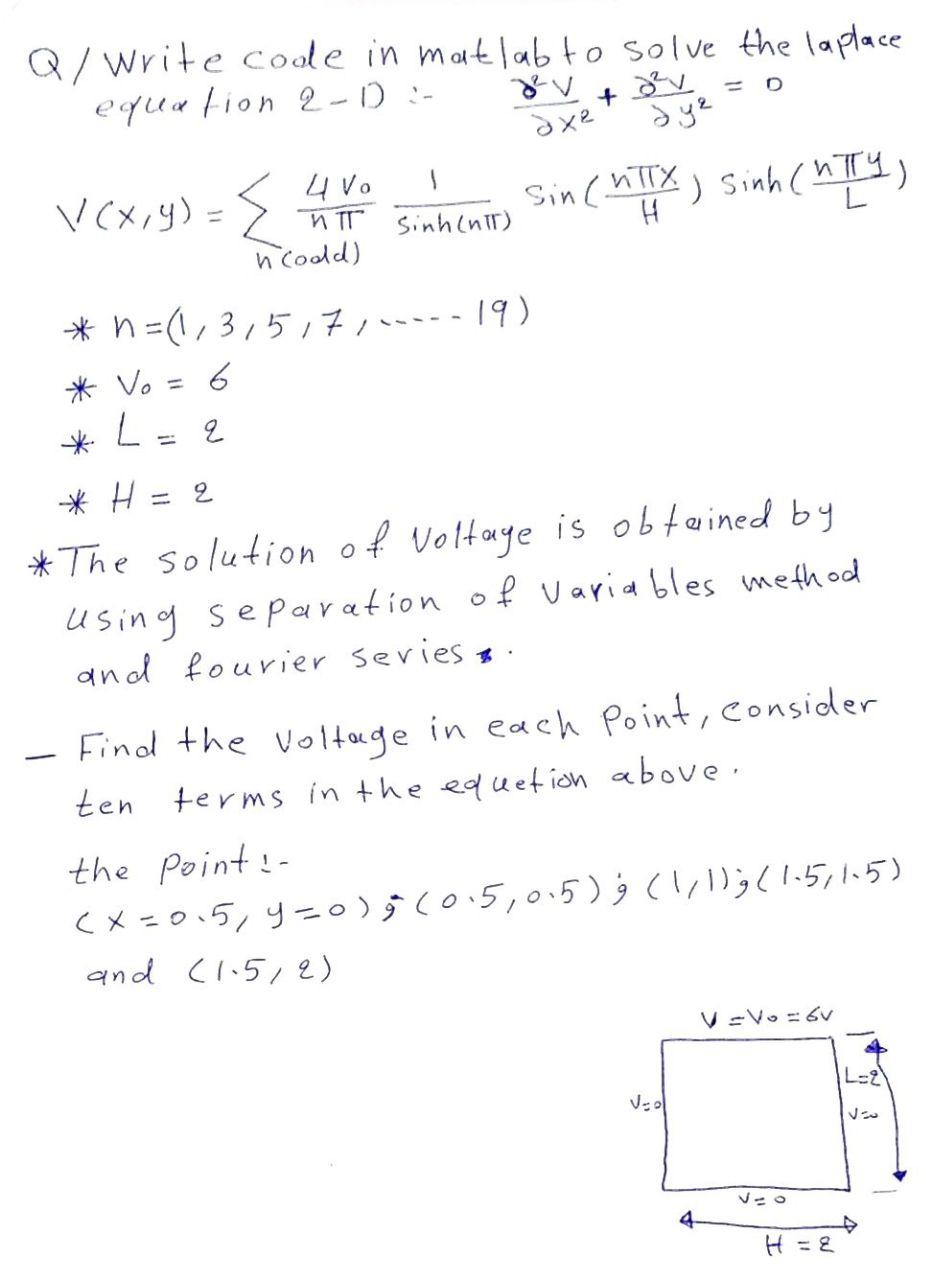 Q/ Write code in matlab to solve the laplace
equation 2-D :- ∂²V/∂x² + ∂²V/∂y² = 0
V(x,y) = Σ n(odd) 4V₀/nπ 1/sinh(nπ) Sin(nπx/H) Sinh(nπy/L)
* n=(1,3,5,7,-----19)
* V₀ = 6
* L = 2
* H = 2
* The solution of Voltage is obtained by
using separation of variables method
and fourier series.
- Find the Voltage in each Point, consider
ten terms in the equetion above.
the Point:-
(x=0.5, y=0); (0.5,0.5); (1,1); (1.5,1.5)
and (1.5,2)
V=V₀=6V
L=2
V=0
V=0
V=0
H=2